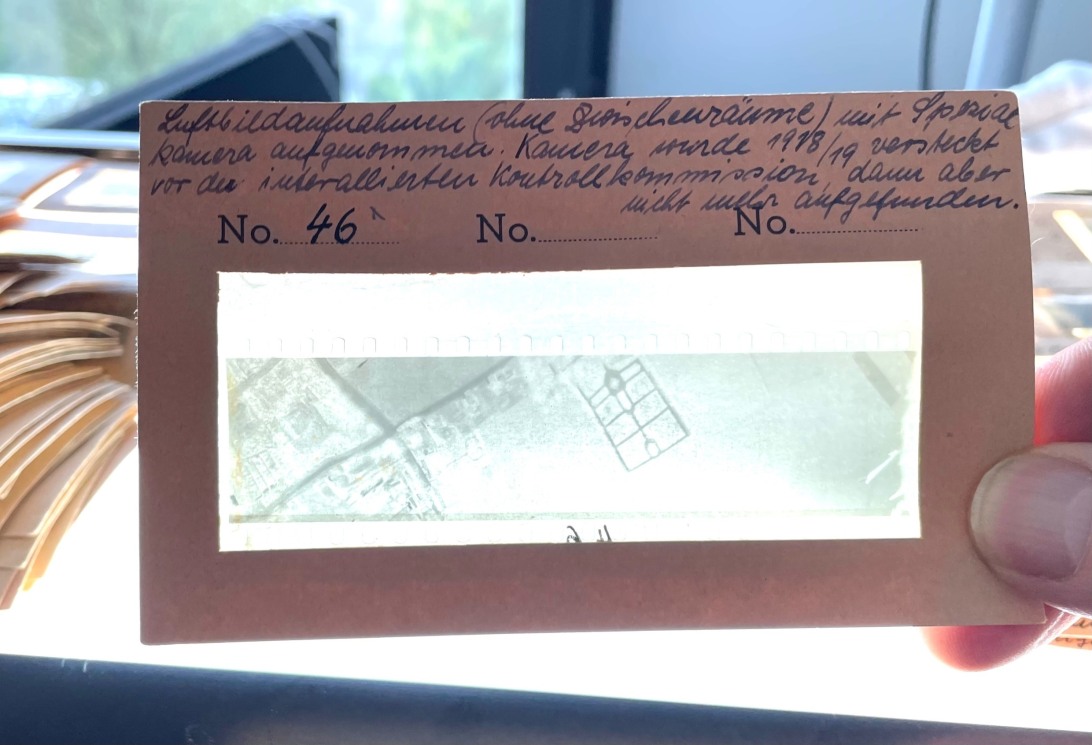 Luftbildaufnahmen (ohne Zwischenräume) mit Spezial
kamera aufgenommen. Kamera wurde 1918/19 versteckt
vor der interalliierten Kontrollkommission, dann aber
nicht mehr aufgefunden.
No. 46 No. No.
46